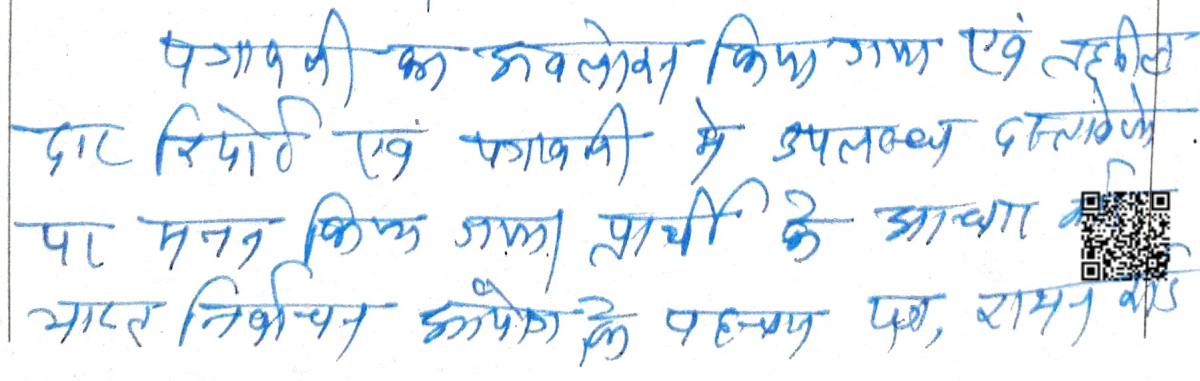 पत्रावली का अवलोकन किया गया एवं तहसील
दार रिपोर्ट एवं पत्रावली मे उपलब्ध दस्तावेजो
पर मनन किया गया। प्रार्थी के आधार
भारत निर्वाचन आयोग के पहचान पत्र, राशन कार्ड